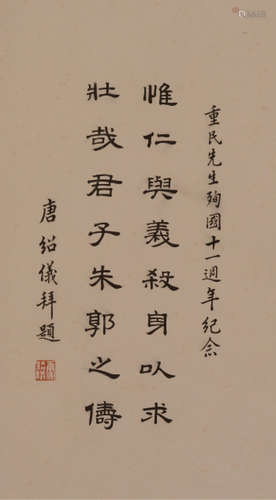 重民先生殉國十一週年紀念
惟仁與義殺身以求
壯哉君子朱郭之儔
唐紹儀拜題